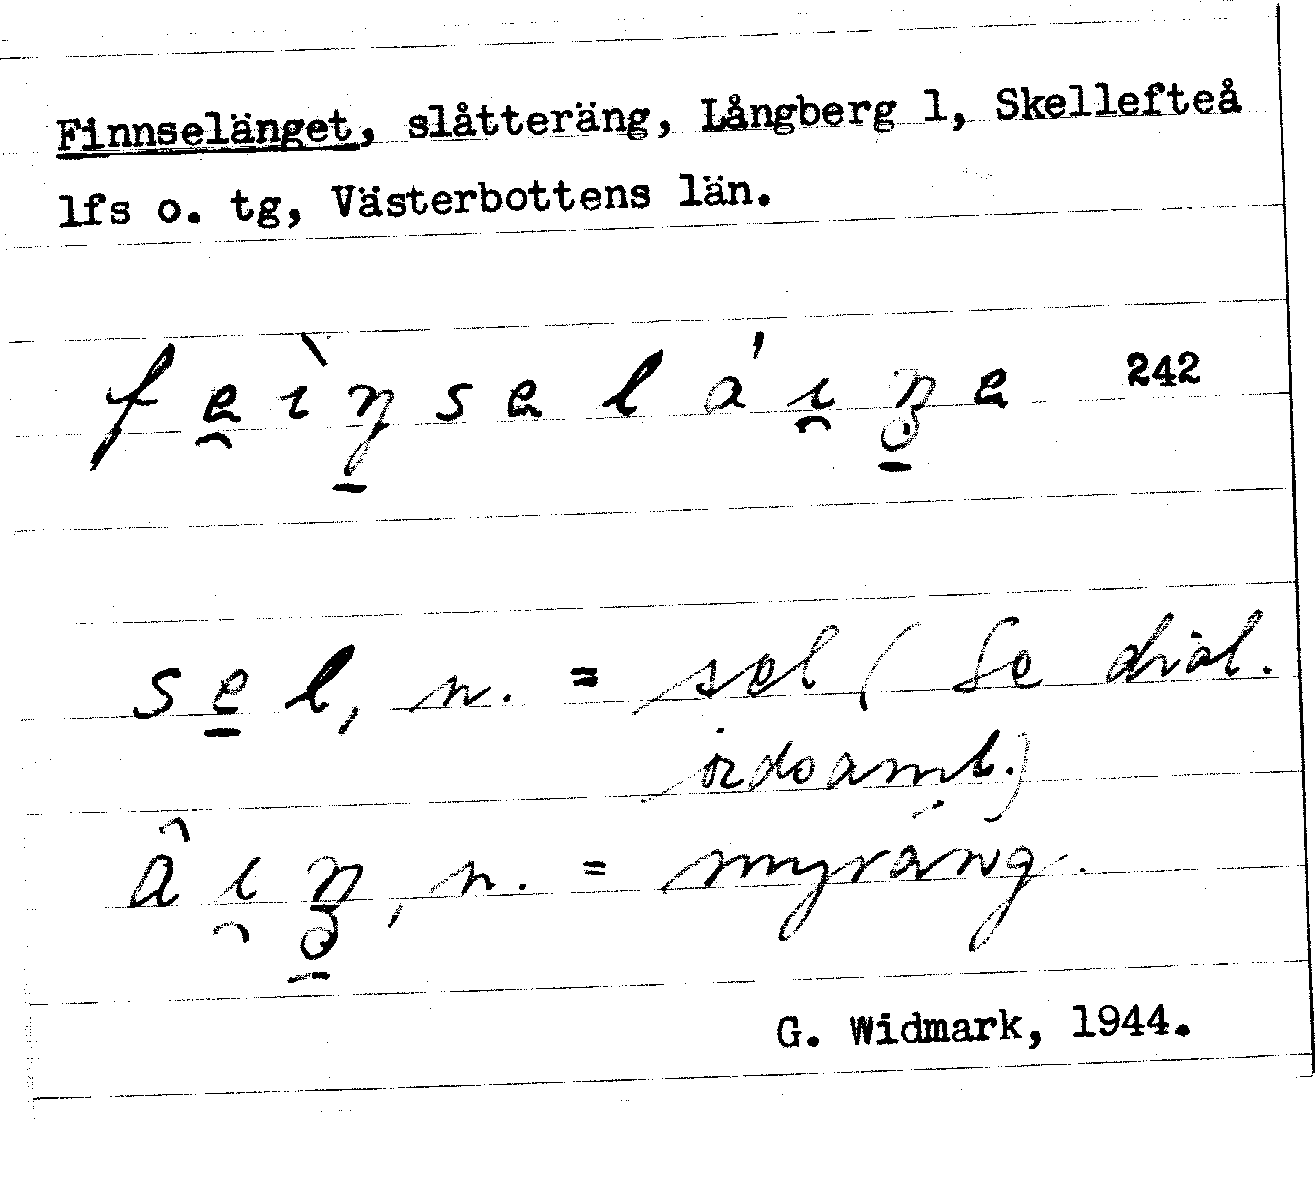 Finnselänget, slåtteräng, Långberg 1, Skellefteå
lfs o. tg, Västerbottens län.
242
sel, n. = sel (Se dial.
ordsaml.)
n. = myräng.
G. Widmark, 1944.